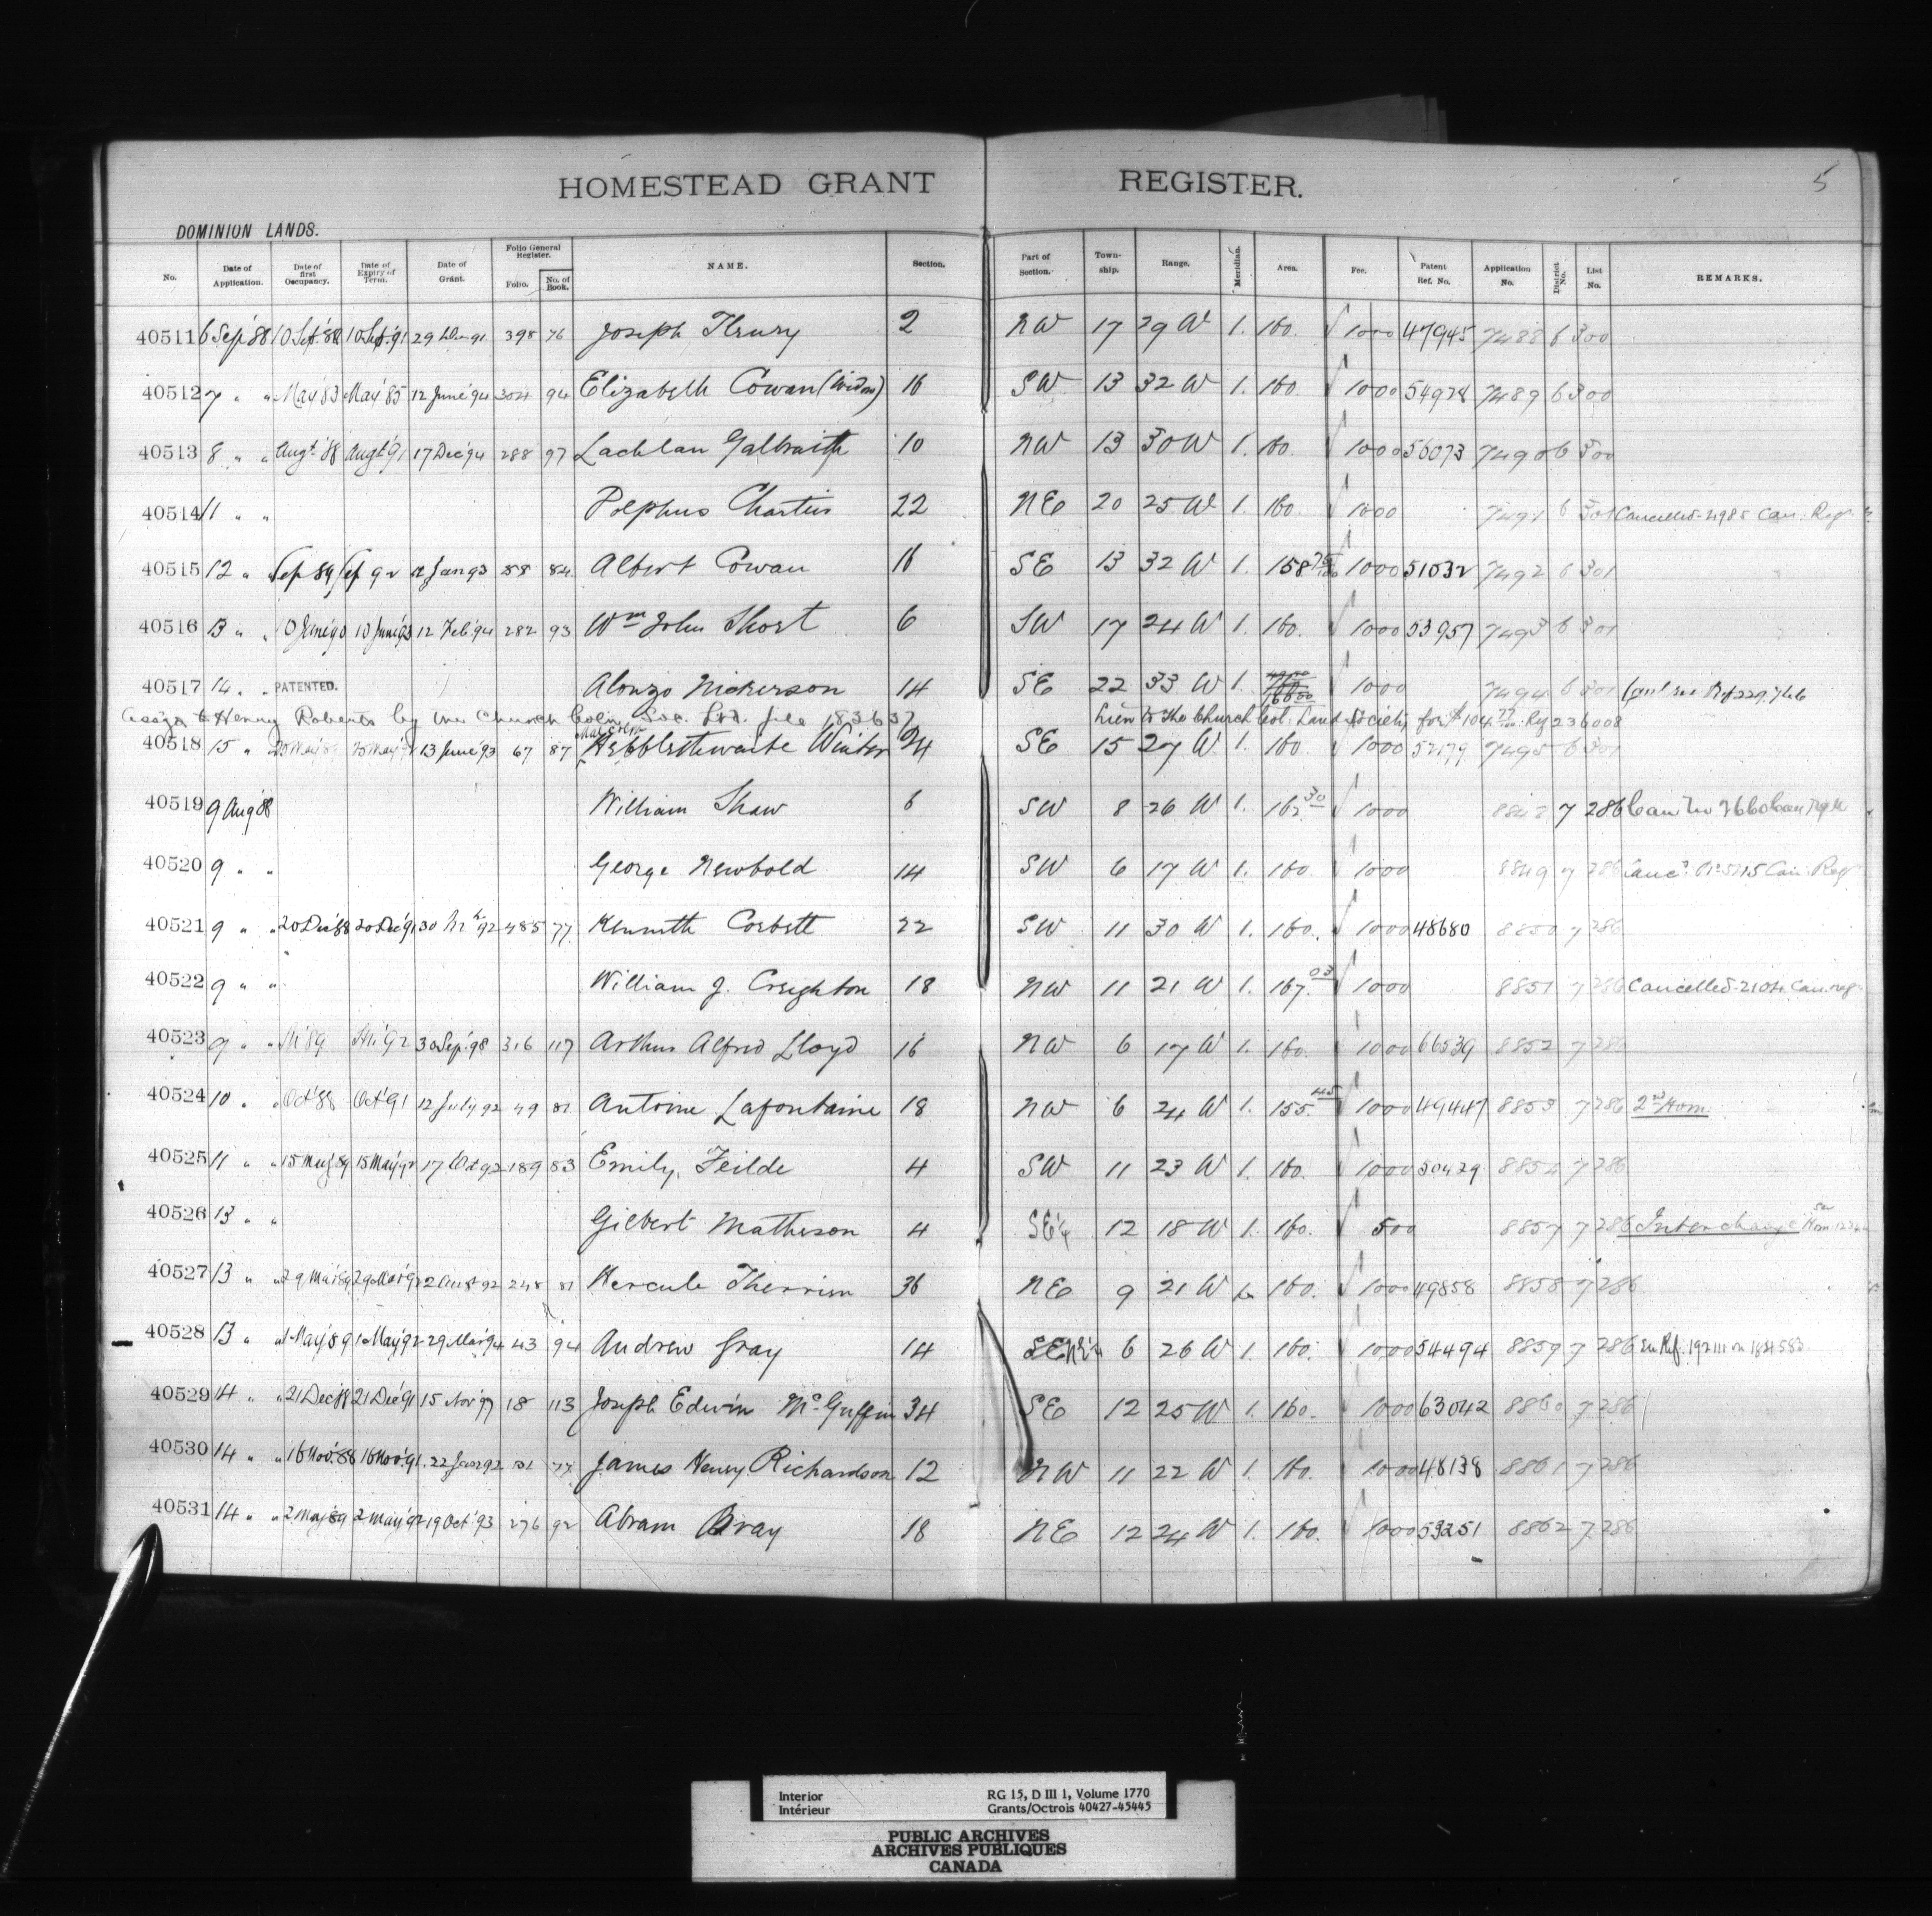 5
HOMESTEAD GRANT REGISTER.
DOMINION LANDS.
No. Date of Application. Date of first Occupancy. Date of Expiry of Term. Date of Grant. Folio General Register. Folio. No. of Book. NAME. Section. Part of Section. Township. Range. Meridian. Area. Fee. Patent Ref. No. Application No. District No. List No. REMARKS.
40511 6 Sep '88 10 Sept. '88 10 Sept. '91 29 Dec 91 398 76 Joseph 2 NW 17 29 W 1. 160. 1000 47945 7488 6 300
40512 7 " " May '83 May '85 12 June '94 304 94 Elizabeth Cowan (Widow) 16 SW 13 32 W 1. 160 1000 54978 7489 6 300
40513 8 " " Augt '88 Augt '91 17 Dec '94 288 97 Lachlan Galbraith 10 NW 13 30 W 1. 160. 1000 56073 7490 6 300
40514 11 " " 22 NE 20 25 W 1. 160. 1000 7491 6 301 Cancelled 2985 Can. Regr
40515 12 " " Sep 89 Sep 92 12 Jan 93 88 84 Albert Cowan 16 SE 13 32 W 1. 158 75/100 1000 51032 7492 6 301
40516 13 " " 10 June '90 10 June '93 12 Feb '94 282 93 Wm John Short 6 SW 17 24 W 1. 160. 1000 53957 7493 6 301
40517 14 " " PATENTED. Alonzo Nickerson 14 SE 22 33 W 1. 1000 7494 6 301
Assign to Henry Roberts by the Church Coln. Soc. Ltd. file 183637
Lien to the Church Col. Land Society for $104.77 Ref 236008
40518 15 " " 13 June '93 67 87 Malcolm Hebblethwaite Winter 24 SE 15 27 W 1. 160. 1000 52179 7495 6 301
40519 9 Aug '88 William Shaw 6 SW 8 26 W 1. 162.30 1000 7 286 Can No 7660 Can Regr
40520 9 " " George Newbold 14 SW 6 17 W 1. 160 1000 8849 7 286 Canc. No 5215 Can. Regr
40521 9 " " 20 Dec '88 20 Dec '91 30 Mch '92 485 77 Kenneth Corbett 22 SW 11 30 W 1. 160. 1000 48680 8850 7 286
40522 9 " " William J. Creighton 18 NW 11 21 W 1. 167.03 1000 8851 7 286 Cancelled 2104 Can. regr
40523 9 " " 30 Sep '98 316 117 Arthur Alfred Lloyd 16 NW 6 17 W 1. 160. 1000 66539 8852 7 286
40524 10 " " Oct '88 Oct '91 12 July 92 49 81 Antoine Lafontaine 18 NW 6 24 W 1. 155.45 1000 49447 8853 7 286 2nd Hom.
40525 11 " " 15 May '89 15 May '92 17 Oct 92 189 83 Emily Feilde 4 SW 11 23 W 1. 160. 1000 50429 8854 7 286
40526 13 " " Gilbert Matheson 4 SE¼ 12 18 W 1. 160. 500 8857 7 286 Interchange
40527 13 " " 29 Mar '89 29 Mar '92 248 81 Hercule Therrien 36 NE 9 21 W 1. 160. 1000 49858 8858 7 286
40528 13 " " 1 May '89 1 May '92 29 Mar '94 43 94 Andrew Gray 14 6 26 W 1. 160. 1000 54494 8859 7 286 See Ref. 192111 on 184583
40529 14 " " 21 Dec '88 21 Dec '91 15 Nov '97 18 113 Joseph Edwin McGuffin 34 SE 12 25 W 1. 160. 1000 63042 8860 7 286
40530 14 " " 16 Nov. '88 16 Nov. '91 22 Jan 92 77 James Henry Richardson 12 NW 11 22 W 1. 160. 1000 48138 8861 7 286
40531 14 " " 2 May '89 2 May '92 19 Oct '93 276 92 Abram Bray 18 NE 12 24 W 1. 160. 1000 53251 8862 7 286
Interior RG 15, D III 1, Volume 1770
Intérieur Grants/Octrois 40427-45445
PUBLIC ARCHIVES
ARCHIVES PUBLIQUES
CANADA